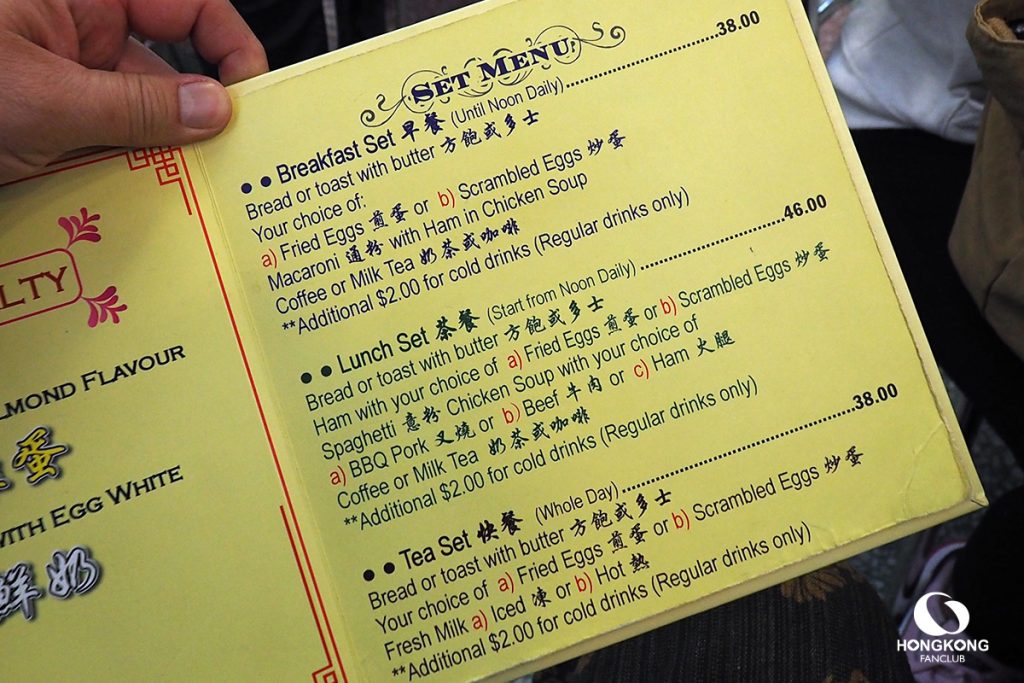 LTY
LMOND FLAVOUR
蛋
WITH EGG WHITE
鮮奶
SET MENU
Breakfast Set 早餐 (Until Noon Daily) 38.00
Bread or toast with butter 方飽或多士
Your choice of:
a) Fried Eggs 煎蛋 or b) Scrambled Eggs 炒蛋
Macaroni 通粉 with Ham in Chicken Soup
Coffee or Milk Tea 奶茶或咖啡
**Additional $2.00 for cold drinks (Regular drinks only)
Lunch Set 茶餐 (Start from Noon Daily) 46.00
Bread or toast with butter 方飽或多士
Ham with your choice of a) Fried Eggs 煎蛋 or b) Scrambled Eggs 炒蛋
Spaghetti 意粉 Chicken Soup with your choice of
a) BBQ Pork 叉燒 or b) Beef 牛肉 or c) Ham 火腿
Coffee or Milk Tea 奶茶或咖啡
**Additional $2.00 for cold drinks (Regular drinks only)
Tea Set 快餐 (Whole Day) 38.00
Bread or toast with butter 方飽或多士
Your choice of a) Fried Eggs 煎蛋 or b) Scrambled Eggs 炒蛋
Fresh Milk a) Iced 凍 or b) Hot 熱
**Additional $2.00 for cold drinks (Regular drinks only)
HONGKONG
FANCLUB